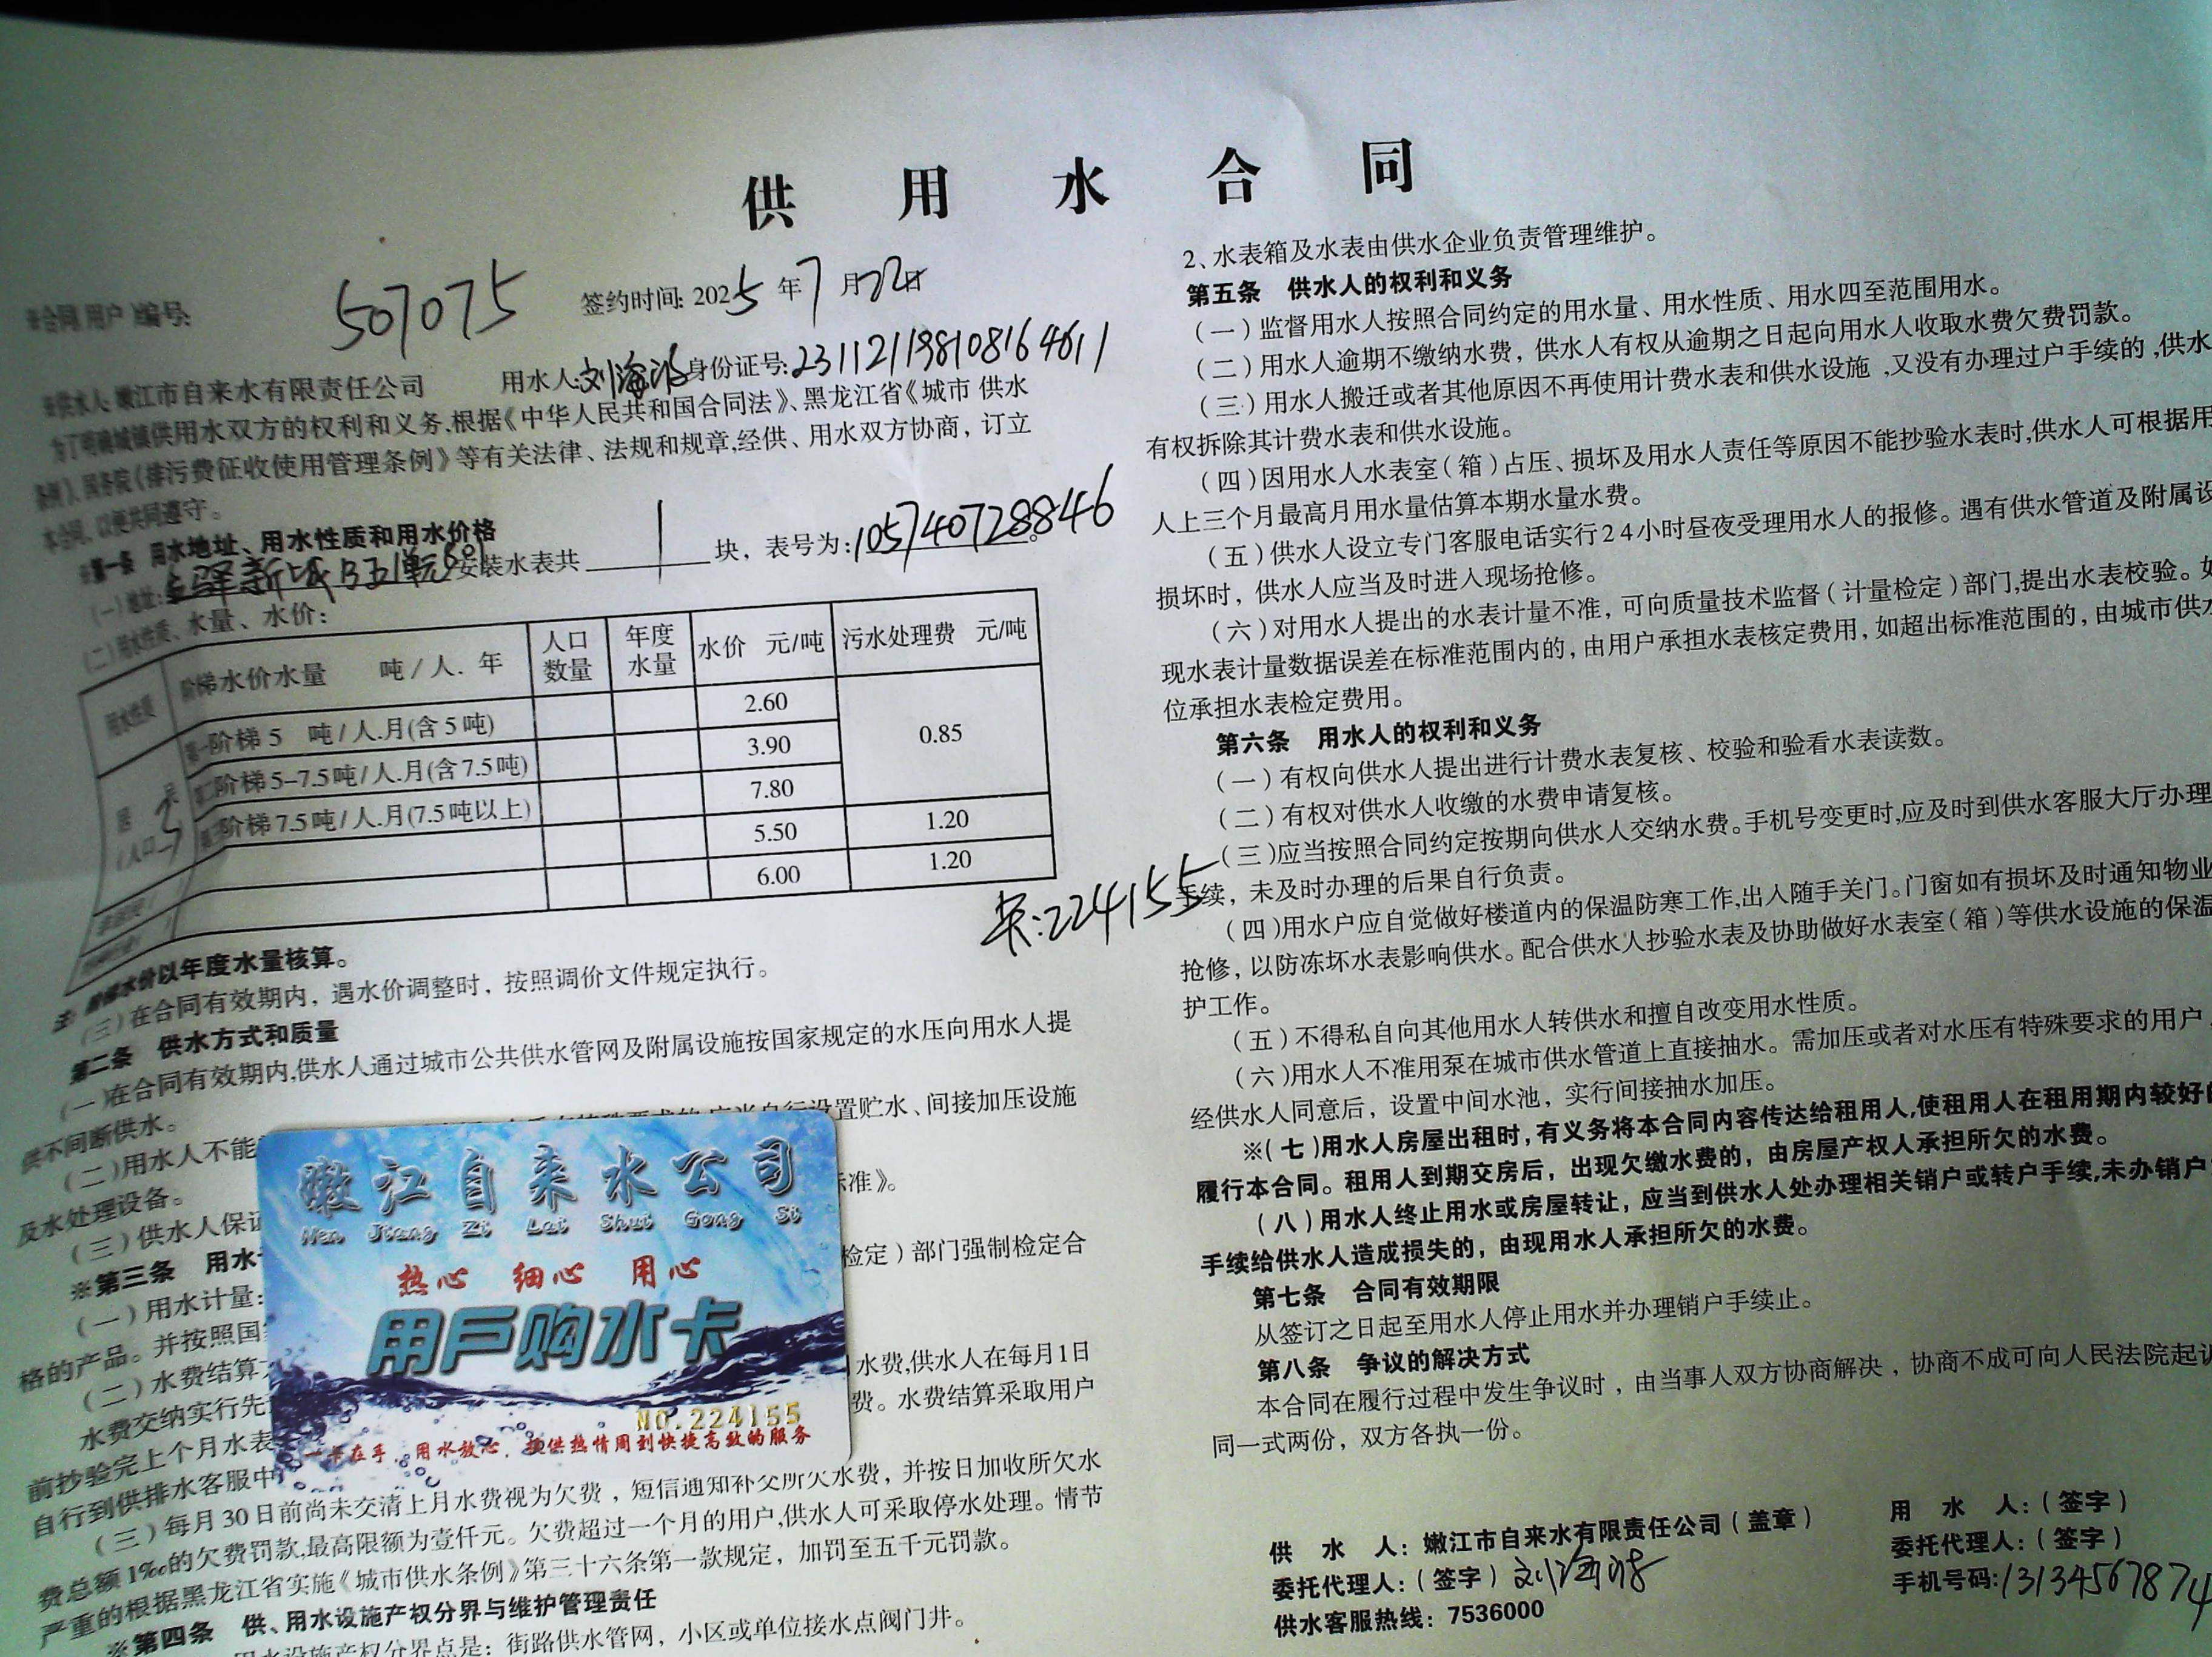 供用水合同
※合同(用户)编号: 507075 签约时间: 2025年7月22日
※供水人: 嫩江市自来水有限责任公司 用水人: 刘海 身份证号: 231121198108164611
为了明确城镇供用水双方的权利和义务,根据《中华人民共和国合同法》、黑龙江省《城市供水
条例》、国务院《排污费征收使用管理条例》等有关法律、法规和规章,经供、用水双方协商，订立
本合同，以便共同遵守。
※第一条 用水地址、用水性质和用水价格
(一)地址: 驿新城 安装水表共 1 块，表号为: 105740728846
(二)用水性质、水量、水价:
用水性质 阶梯水价水量 吨/人.年 人口数量 年度水量 水价 元/吨 污水处理费 元/吨
居民 第一阶梯5 吨/人.月(含5吨) 2.60 0.85
(人口 第二阶梯5-7.5吨/人.月(含7.5吨) 3.90
第三阶梯7.5吨/人.月(7.5吨以上) 7.80
5.50 1.20
6.00 1.20
卡:224155
注: 阶梯水价以年度水量核算。
(三)在合同有效期内，遇水价调整时，按照调价文件规定执行。
第二条 供水方式和质量
(一)在合同有效期内,供水人通过城市公共供水管网及附属设施按国家规定的水压向用水人提
供不间断供水。
(二)用水人不能 置贮水、间接加压设施
及水处理设备。
(三)供水人保证 标准》。
※第三条 用水
(一)用水计量: 检定)部门强制检定合
格的产品。并按照国
(二)水费结算
水费交纳实行先 水费,供水人在每月1日
前抄验完上个月水表 费。水费结算采取用户
自行到供排水客服中
(三)每月30日前尚未交清上月水费视为欠费，短信通知补交所欠水费，并按日加收所欠水
费总额1‰的欠费罚款,最高限额为壹仟元。欠费超过一个月的用户,供水人可采取停水处理。情节
严重的根据黑龙江省实施《城市供水条例》第三十六条第一款规定，加罚至五千元罚款。
※第四条 供、用水设施产权分界与维护管理责任
用水设施产权分界点是: 街路供水管网，小区或单位接水点阀门井。
嫩江自来水公司
Nen Jiang Zi Lai Shui Gong Si
热心 细心 用心
用户购水卡
NO.224155
一卡在手，用水放心，提供热情周到快捷高效的服务
2、水表箱及水表由供水企业负责管理维护。
第五条 供水人的权利和义务
(一)监督用水人按照合同约定的用水量、用水性质、用水四至范围用水。
(二)用水人逾期不缴纳水费，供水人有权从逾期之日起向用水人收取水费欠费罚款。
(三)用水人搬迁或者其他原因不再使用计费水表和供水设施,又没有办理过户手续的,供水
有权拆除其计费水表和供水设施。
(四)因用水人水表室(箱)占压、损坏及用水人责任等原因不能抄验水表时,供水人可根据用
人上三个月最高月用水量估算本期水量水费。
(五)供水人设立专门客服电话实行24小时昼夜受理用水人的报修。遇有供水管道及附属设
损坏时，供水人应当及时进入现场抢修。
(六)对用水人提出的水表计量不准，可向质量技术监督(计量检定)部门,提出水表校验。如
现水表计量数据误差在标准范围内的，由用户承担水表核定费用，如超出标准范围的，由城市供水
位承担水表检定费用。
第六条 用水人的权利和义务
(一)有权向供水人提出进行计费水表复核、校验和验看水表读数。
(二)有权对供水人收缴的水费申请复核。
(三)应当按照合同约定按期向供水人交纳水费。手机号变更时,应及时到供水客服大厅办理
手续，未及时办理的后果自行负责。
(四)用水户应自觉做好楼道内的保温防寒工作,出入随手关门。门窗如有损坏及时通知物业
抢修，以防冻坏水表影响供水。配合供水人抄验水表及协助做好水表室(箱)等供水设施的保温
护工作。
(五)不得私自向其他用水人转供水和擅自改变用水性质。
(六)用水人不准用泵在城市供水管道上直接抽水。需加压或者对水压有特殊要求的用户，
经供水人同意后，设置中间水池，实行间接抽水加压。
※(七)用水人房屋出租时,有义务将本合同内容传达给租用人,使租用人在租用期内较好的
履行本合同。租用人到期交房后，出现欠缴水费的，由房屋产权人承担所欠的水费。
(八)用水人终止用水或房屋转让，应当到供水人处办理相关销户或转户手续,未办销户
手续给供水人造成损失的，由现用水人承担所欠的水费。
第七条 合同有效期限
从签订之日起至用水人停止用水并办理销户手续止。
第八条 争议的解决方式
本合同在履行过程中发生争议时，由当事人双方协商解决，协商不成可向人民法院起诉
同一式两份，双方各执一份。
供水人: 嫩江市自来水有限责任公司(盖章) 用水人:(签字)
委托代理人:(签字) 刘海 委托代理人:(签字)
供水客服热线: 7536000 手机号码: 13134567874